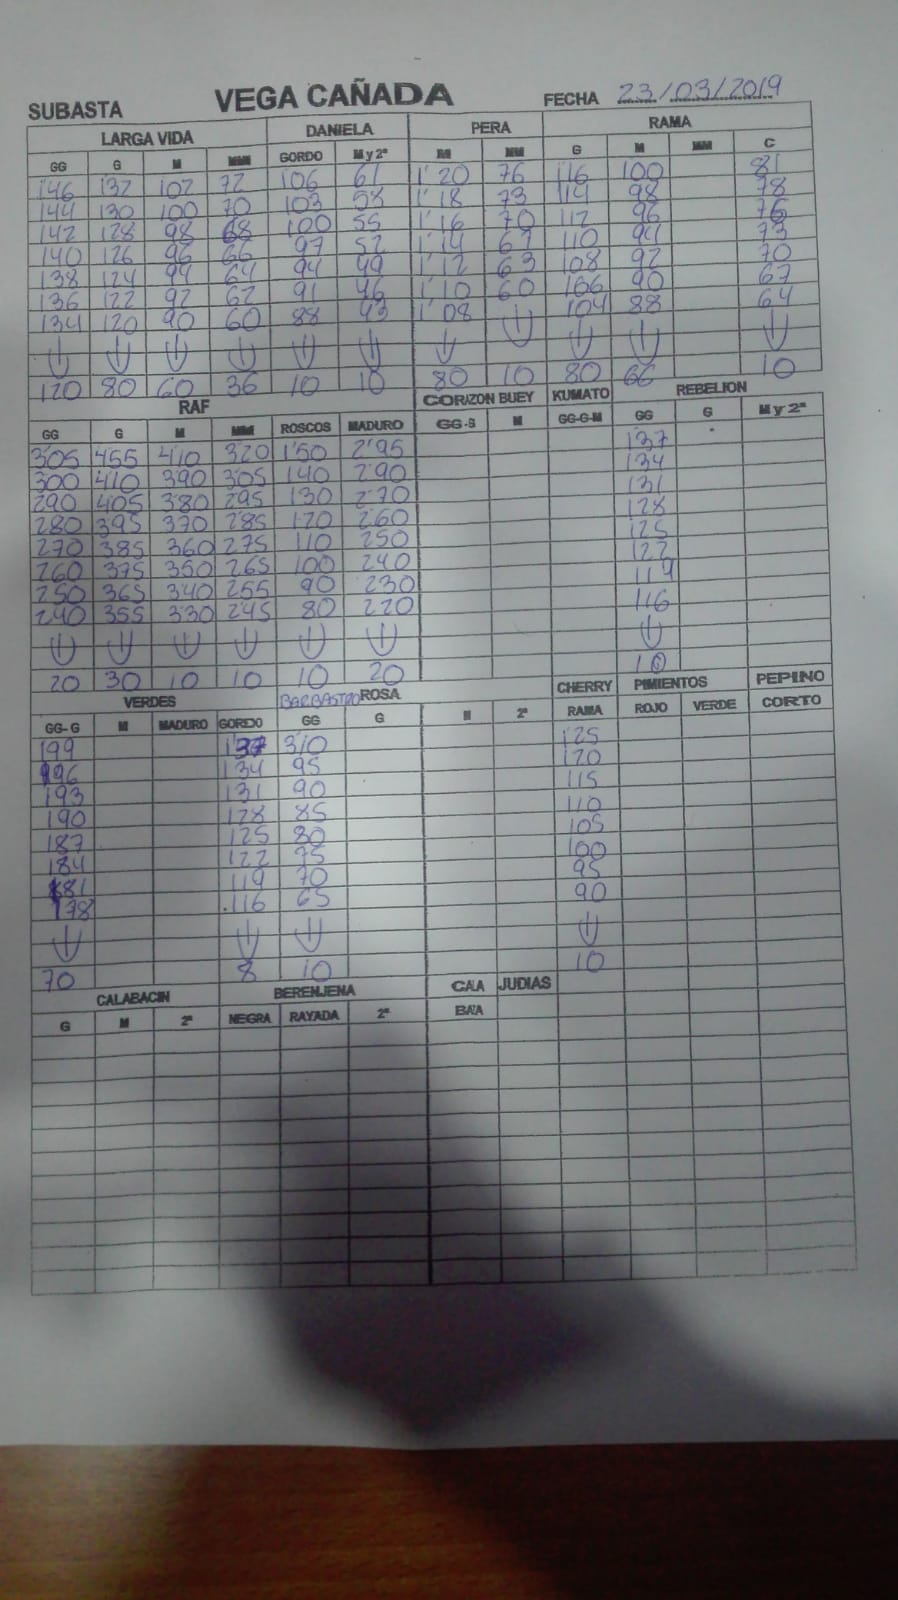 SUBASTA VEGA CAÑADA FECHA 23/03/2019
LARGA VIDA DANIELA PERA RAMA
GG G M MM GORDO M y 2ª M MM G M MM C
146 132 102 72 106 61 1'20 76 116 100 81
144 130 100 70 103 58 1'18 73 114 98 78
142 128 98 68 100 55 1'16 70 112 96 76
140 126 96 66 97 52 1'14 67 110 94 73
138 124 94 64 94 49 1'12 63 108 92 70
136 122 92 62 91 46 1'10 60 106 90 67
134 120 90 60 88 43 1'08 104 88 64
120 80 60 36 10 10 80 10 80 66 10
RAF CORAZON BUEY KUMATO REBELION
GG G M MM ROSCOS MADURO GG-G M GG-G-M GG G M y 2ª
305 455 410 320 1'50 2'95 137
300 410 390 305 140 290 134
290 405 380 295 130 270 131
280 395 370 285 120 260 128
270 385 360 275 110 250 125
260 375 350 265 100 240 122
250 365 340 255 90 230 119
240 355 330 245 80 220 116
20 30 10 10 10 20 10
VERDES BARBASTRO ROSA CHERRY PIMIENTOS PEPINO
GG-G M MADURO GORDO GG G M 2ª RAMA ROJO VERDE CORTO
199 137 310 125
196 134 95 120
193 131 90 115
190 128 85 110
187 125 80 105
184 122 75 100
181 119 70 95
178 116 65 90
70 8 10 10
CALABACIN BERENJENA CALA JUDIAS
G M 2ª NEGRA RAYADA 2ª BAJA